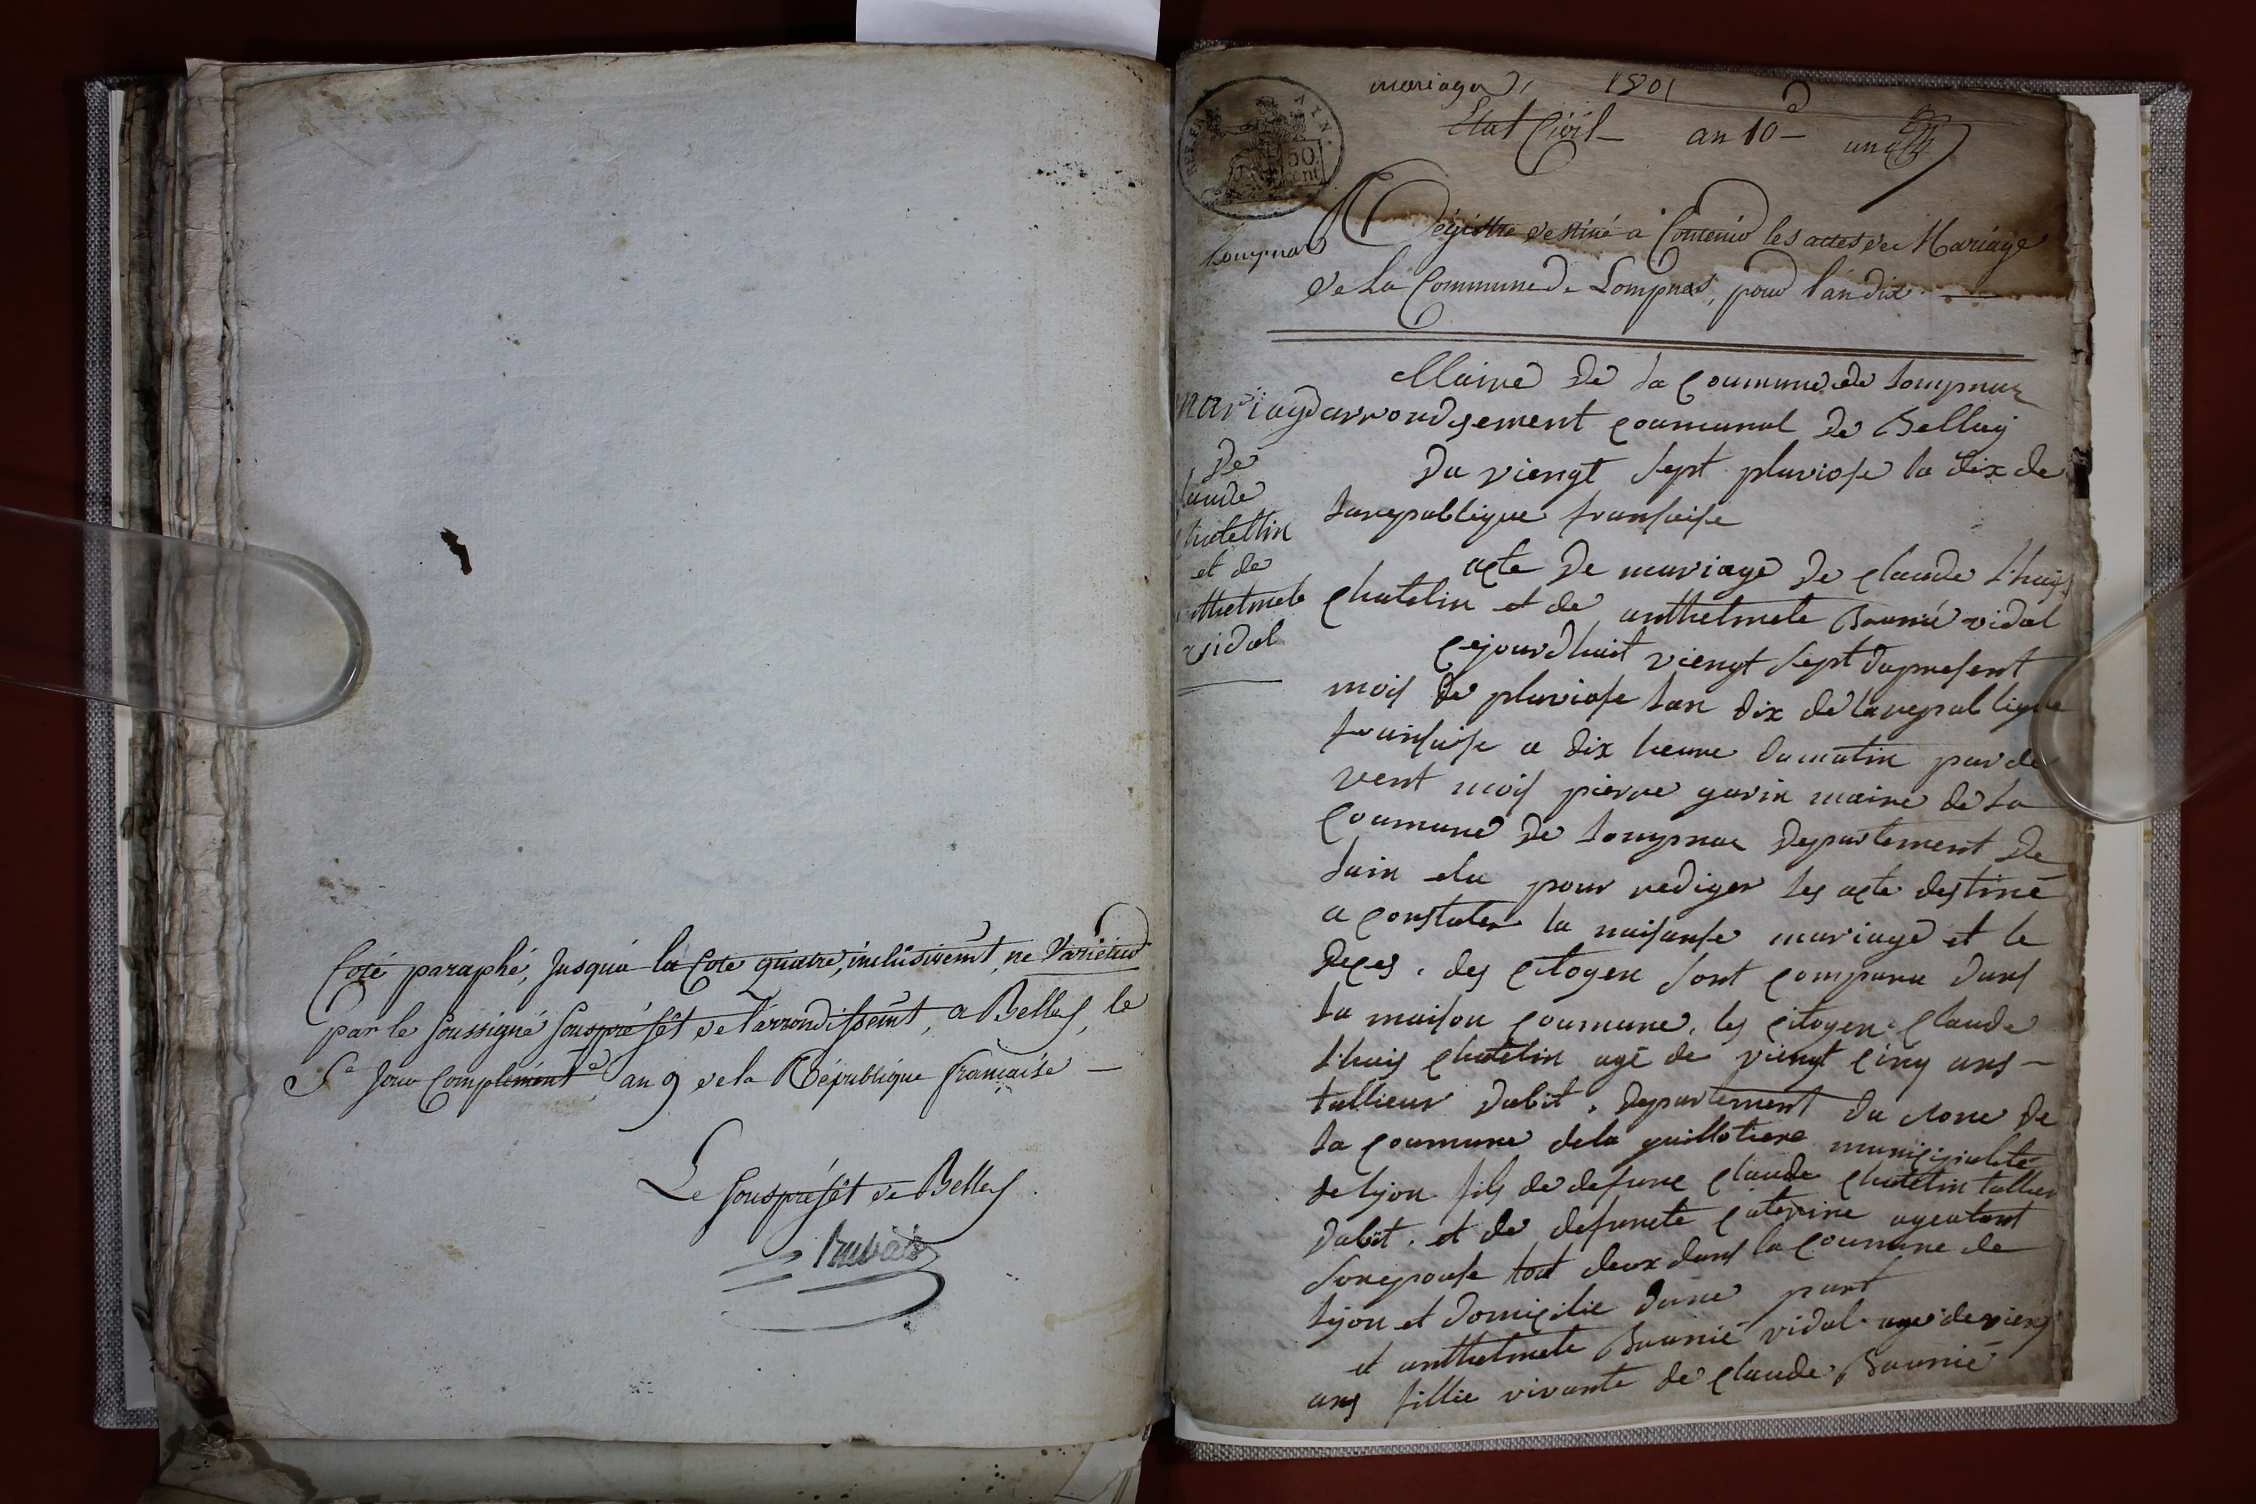 Coté paraphé, Jusqua la Cote quatre, inclusivemt, ne Varietur
par le Soussigné Souspréfêt de l'arrondissemt, a Belley, le
5e Jour Complémentre an 9 de la République française
Le Souspréfêt de Belley
mariage 1801
Etat Civil an 10 un
REP. FRA. AYN.
50 cent
Lompnas
Régistre destiné a Contenir les actes de Mariage
de La Commune de Lompnas, pour l'an dix
Maire de la Coumune de Lompnaz
arrondisement coumunal de Belley
mariage
de
laude
hatellin
et de
nthelmete
vidal
Du viengt sept pluviose la dix de
larepublique fransaise
acte de mariage de claude Lhuis
chatelin et de anthelmete Baunié vidal
cejourdhuit viengt sept dupresent
mois de pluviose lan dix de larepublique
fransaise a dix heure dumatin parde
vent mois pierre garin maire de la
coumune de Lompnaz departement de
lain elu pour rediger les acte destiné
a constater la naisanse mariage et le
deces. des citoyen sont comparu dans
la maison coumune, les citoyen claude
Lhuis chatelin agé de viengt cinq ans
tallieur dabit. departement du rone de
la coumune dela guillotiere municipialité
de lyon fils de defunc claude chatelin tallieur
dabit. et de defuncte caterine
sonepouse tout deux dans la coumune de
lyon et domicilie dune part
et anthelmete Baunié vidal age de vieng
ans fillie vivante de claude Baunié